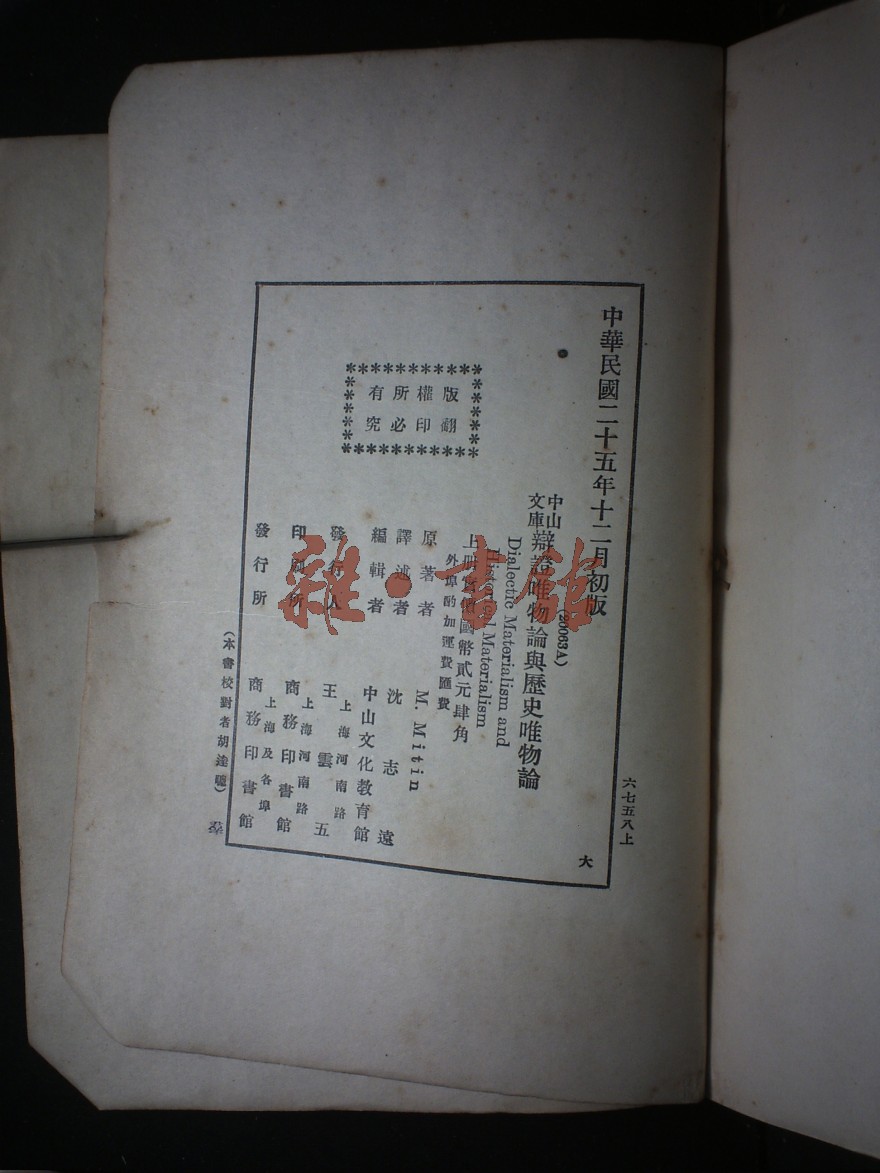 中華民國二十五年十二月初版
六七五八上
大
(20063A)
中山文庫 辯證唯物論與歷史唯物論
Dialectic Materialism and
Historical Materialism
上册實價國幣貳元肆角
外埠酌加運費匯費
版權所有
翻印必究
原著者 M. Mitin
譯述者 沈志遠
編輯者 中山文化教育館
發行人 王雲五
上海河南路
印刷所 商務印書館
上海河南路
發行所 商務印書館
上海及各埠
(本書校對者胡達聰)
雜·書館